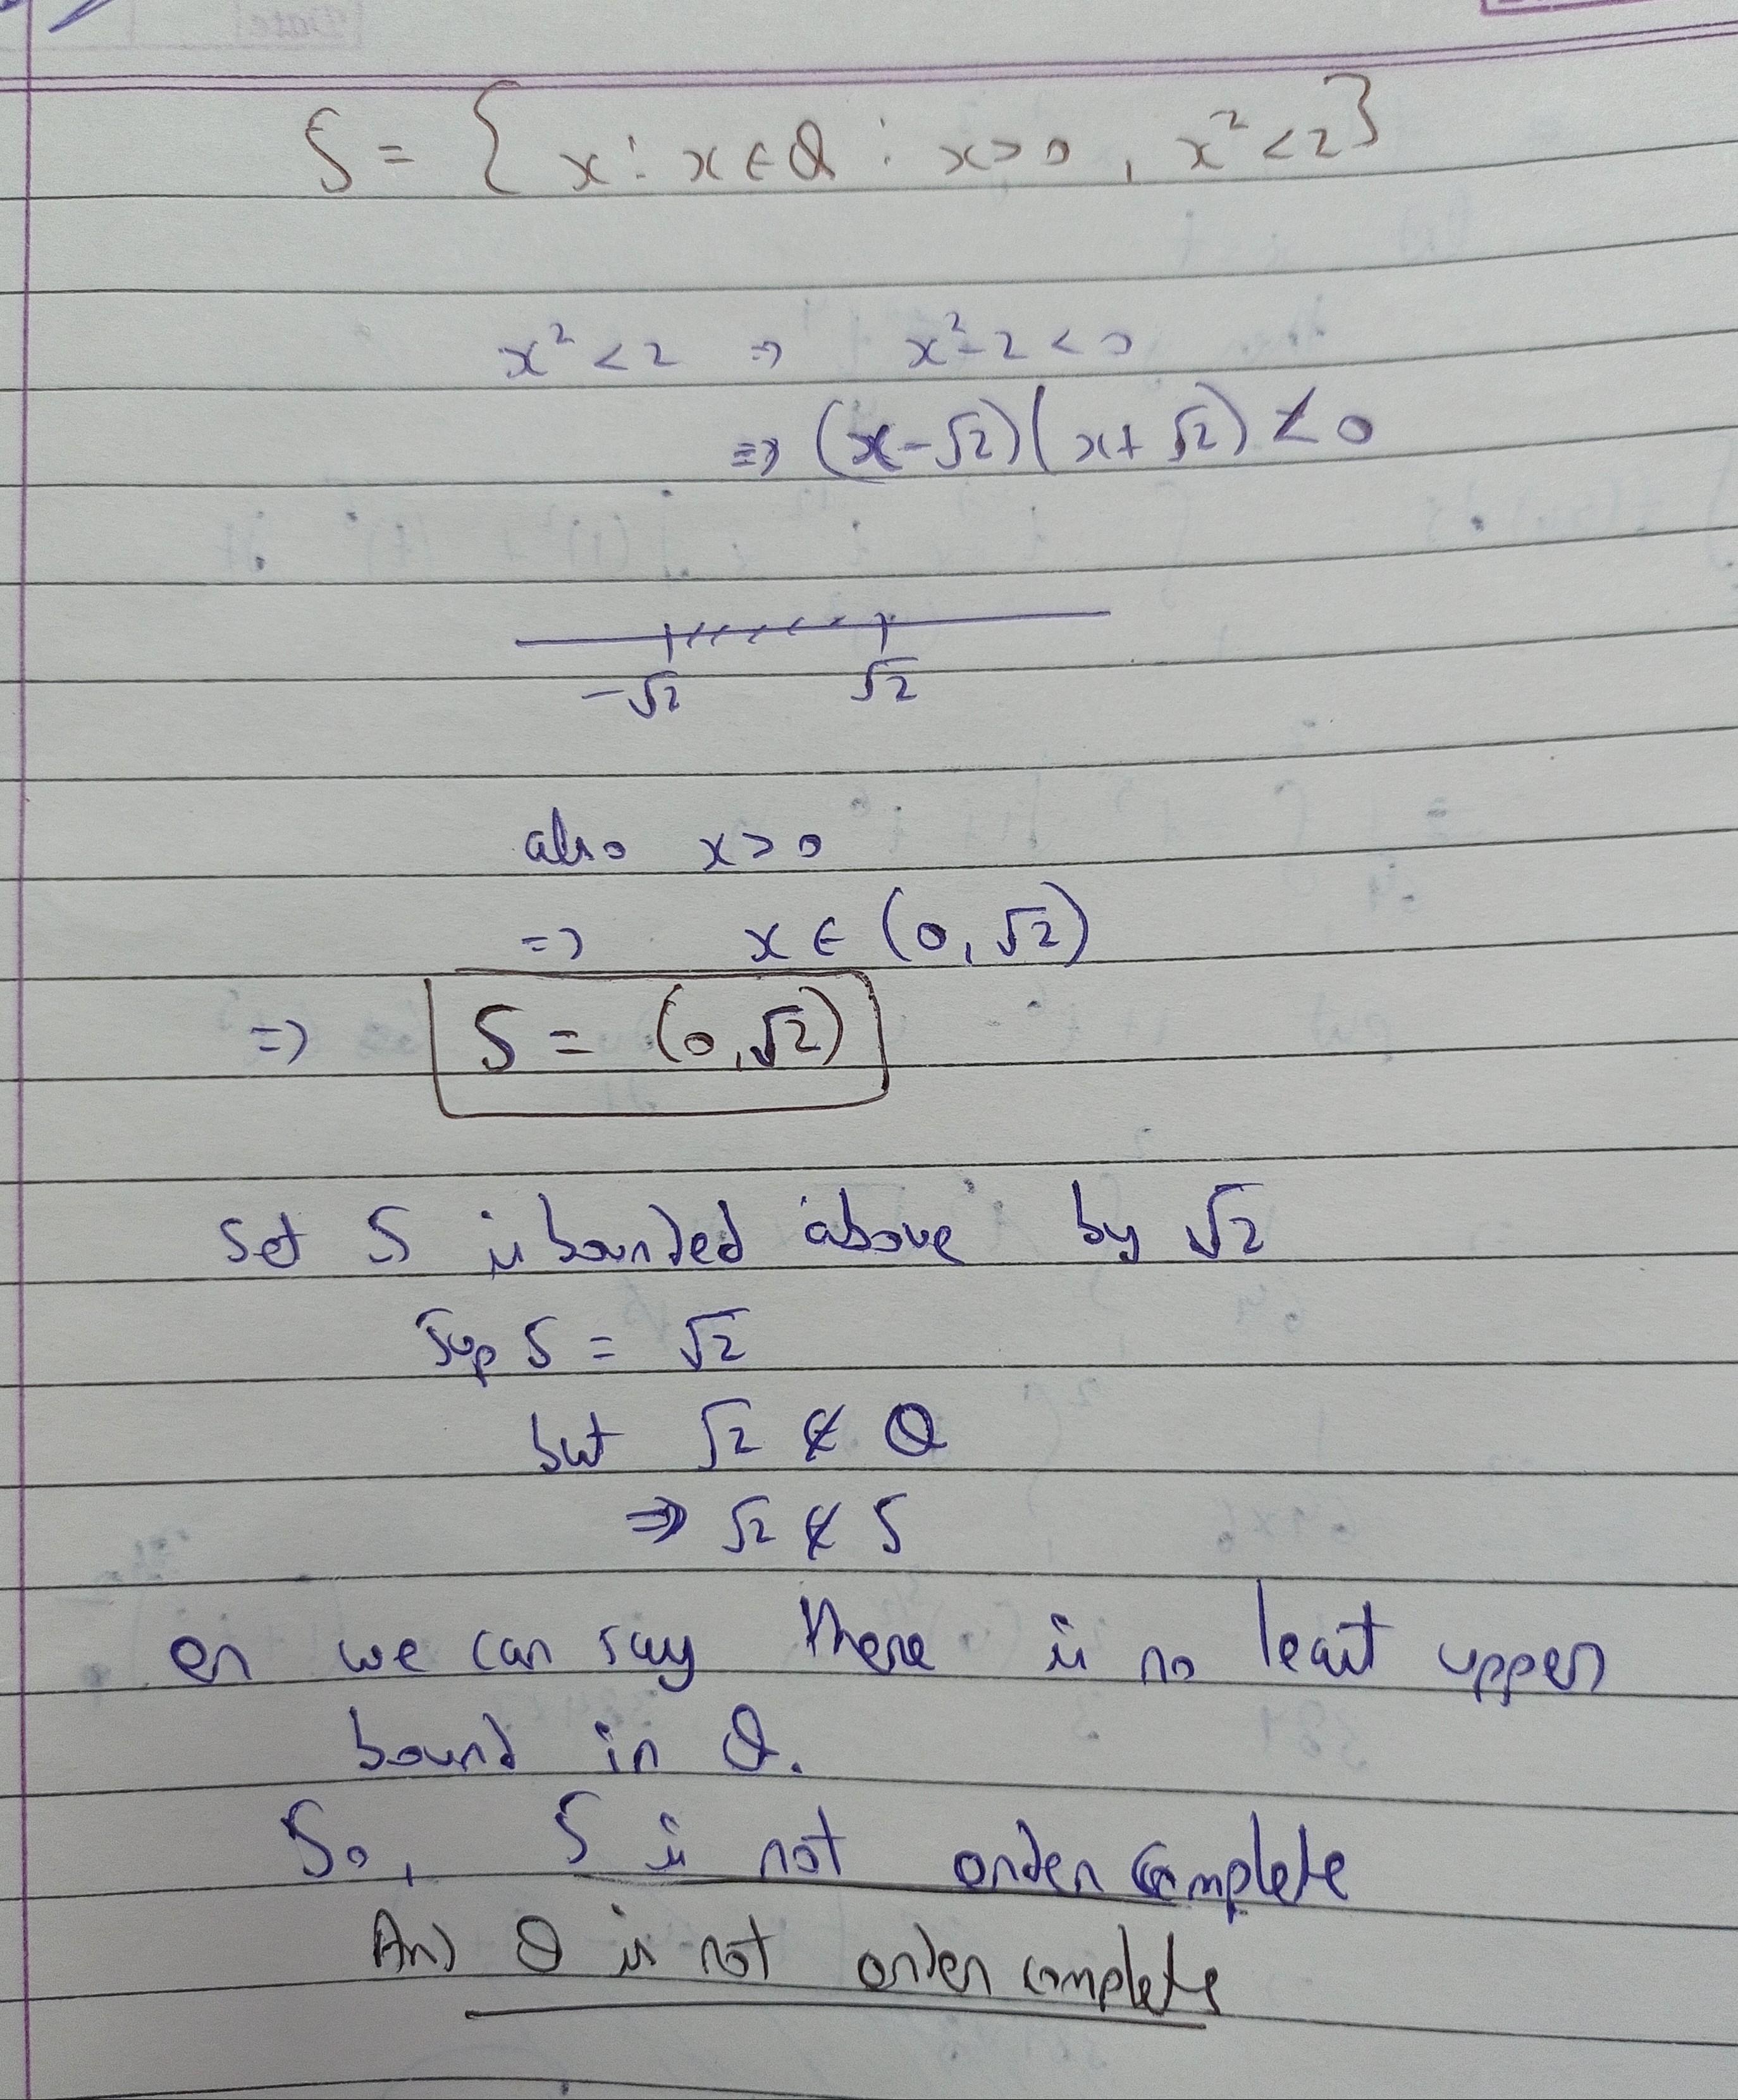 S = { x : x ∈ Q : x > 0 , x² < 2 }
x² < 2 ⇒ x² - 2 < 0
⇒ (x - √2)(x + √2) < 0
-√2 √2
also x > 0
⇒ x ∈ (0, √2)
⇒ S = (0, √2)
Set S is bounded above by √2
Sup S = √2
but √2 ∉ Q
⇒ √2 ∉ S
or we can say there is no least upper
bound in Q.
So, S is not order complete
And Q is not order complete